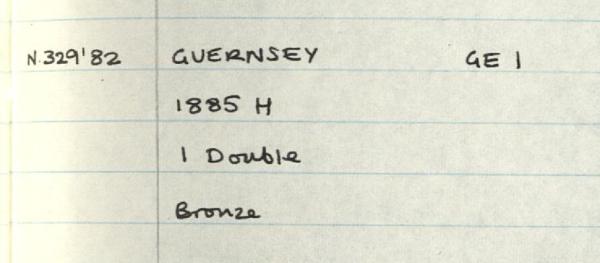 N.329'82 GUERNSEY GE 1
1885 H
1 Double
Bronze